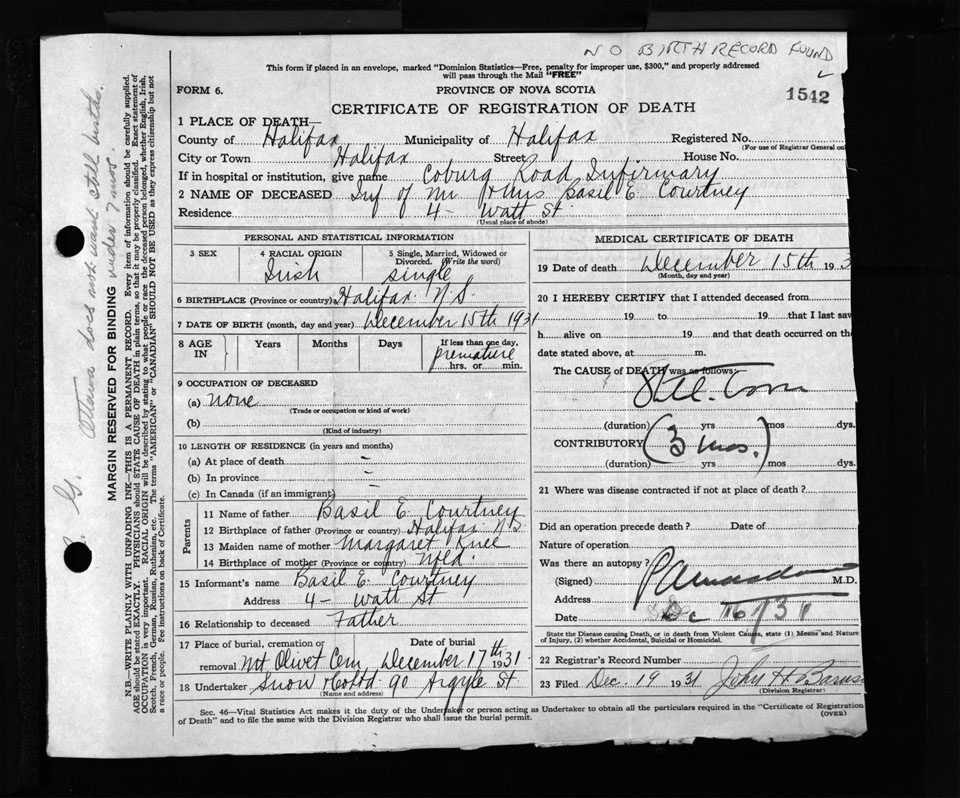 NO BIRTH RECORD FOUND
This form if placed in an envelope, marked "Dominion Statistics—Free, penalty for improper use, $300," and properly addressed
will pass through the Mail "FREE"
FORM 6.
PROVINCE OF NOVA SCOTIA
1542
CERTIFICATE OF REGISTRATION OF DEATH
1 PLACE OF DEATH—
County of Halifax Municipality of Halifax Registered No.
(For use of Registrar General on
City or Town Halifax Street House No.
If in hospital or institution, give name Coburg Road Infirmary
2 NAME OF DECEASED Inf of Mr &Mrs Basil E Courtney
Residence 4- Watt St.
(Usual place of abode)
PERSONAL AND STATISTICAL INFORMATION
3 SEX
4 RACIAL ORIGIN Irish
5 Single, Married, Widowed or Divorced. (Write the word) single
6 BIRTHPLACE (Province or country) Halifax N.S.
7 DATE OF BIRTH (month, day and year) December 15th 1931
8 AGE IN Years Months Days If less than one day, premature hrs. or min.
9 OCCUPATION OF DECEASED
(a) none
(Trade or occupation or kind of work)
(b)
(Kind of industry)
10 LENGTH OF RESIDENCE (in years and months)
(a) At place of death –
(b) In province –
(c) In Canada (if an immigrant) –
Parents
11 Name of father Basil E. Courtney
12 Birthplace of father (Province or country) Halifax N.S.
13 Maiden name of mother Margaret Knee
14 Birthplace of mother (Province or country) Nfld.
15 Informant's name Basil E. Courtney
Address 4- Watt St
16 Relationship to deceased Father
17 Place of burial, cremation or removal Mt Olivet Cem Date of burial December 17th 1931
18 Undertaker Snow & Co Ltd 90 Argyle St.
(Name and address)
MEDICAL CERTIFICATE OF DEATH
19 Date of death December 15th 193
(Month, day and year)
20 I HEREBY CERTIFY that I attended deceased from
19 to 19 that I last saw
h alive on 19 and that death occurred on the
date stated above, at m.
The CAUSE of DEATH was as follows:
Still born
(duration) yrs mos dys.
CONTRIBUTORY (3 mos.)
(duration) yrs mos dys.
21 Where was disease contracted if not at place of death?
Did an operation precede death? Date of
Nature of operation
Was there an autopsy?
(Signed) M.D.
Address
Date Dec 16/31
State the Disease causing Death, or in death from Violent Causes, state (1) Means and Nature
of Injury, (2) whether Accidental, Suicidal or Homicidal.
22 Registrar's Record Number
23 Filed Dec. 19 1931 John H Barns
(Division Registrar)
Sec. 46—Vital Statistics Act makes it the duty of the Undertaker or person acting as Undertaker to obtain all the particulars required in the "Certificate of Registration
of Death" and to file the same with the Division Registrar who shall issue the burial permit.
(OVER)
Ottawa does not want still births
under 7 mos.
MARGIN RESERVED FOR BINDING
N.B.—WRITE PLAINLY WITH UNFADING INK—THIS IS A PERMANENT RECORD. Every item of information should be carefully supplied.
AGE should be stated EXACTLY. PHYSICIANS should STATE CAUSE OF DEATH in plain terms, so that it may be properly classified. Exact statement of
OCCUPATION is very important. RACIAL ORIGIN will be described by stating to what people or race the deceased person belonged, whether English, Irish,
Scotch, French, German, Russian, Ruthenian, etc. The terms "AMERICAN" or "CANADIAN" SHOULD NOT BE USED as they express citizenship but not
a race or people. Fee instructions on back of Certificate.